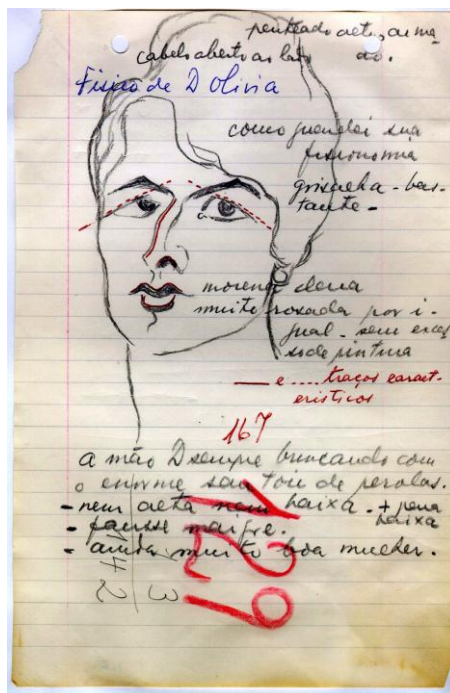 penteado alto, arma
do.
cabelo aberto ao lado
Fisico de D Olivia
como guardei sua
fisionomia
grisalha - bas-
tante -
morena clara
muito rosada por i-
gual - sem exces
so de pintura
— e .... traços caract-
eristicos
167
a mão D sempre brincando com
o enorme sautoir de perolas.
- nem alta nem baixa - + para
baixa
- fausse maigre.
- ainda muito boa mulher.
129